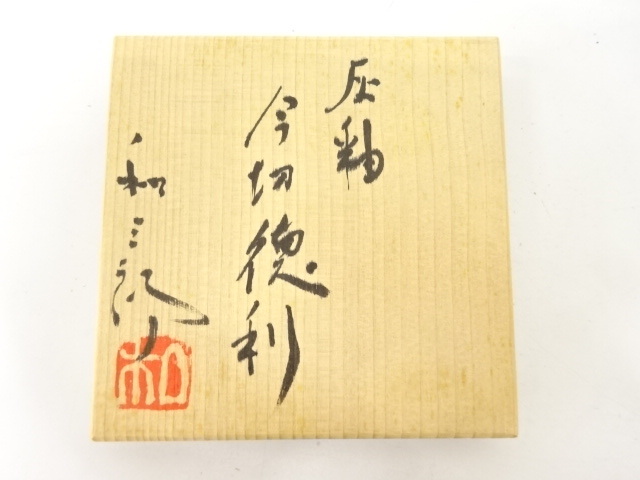 灰釉
徳利
和三郎
和